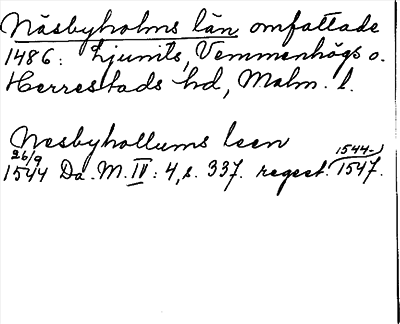 Näsbyholms län omfattade
1486: Ljunits, Vemmenhögs o.
Herrestads hd, Malm. l.
Nesbyhollums leen
26/9
1544 Da. M. IV: 4, s. 337. regest. 1544-1547.